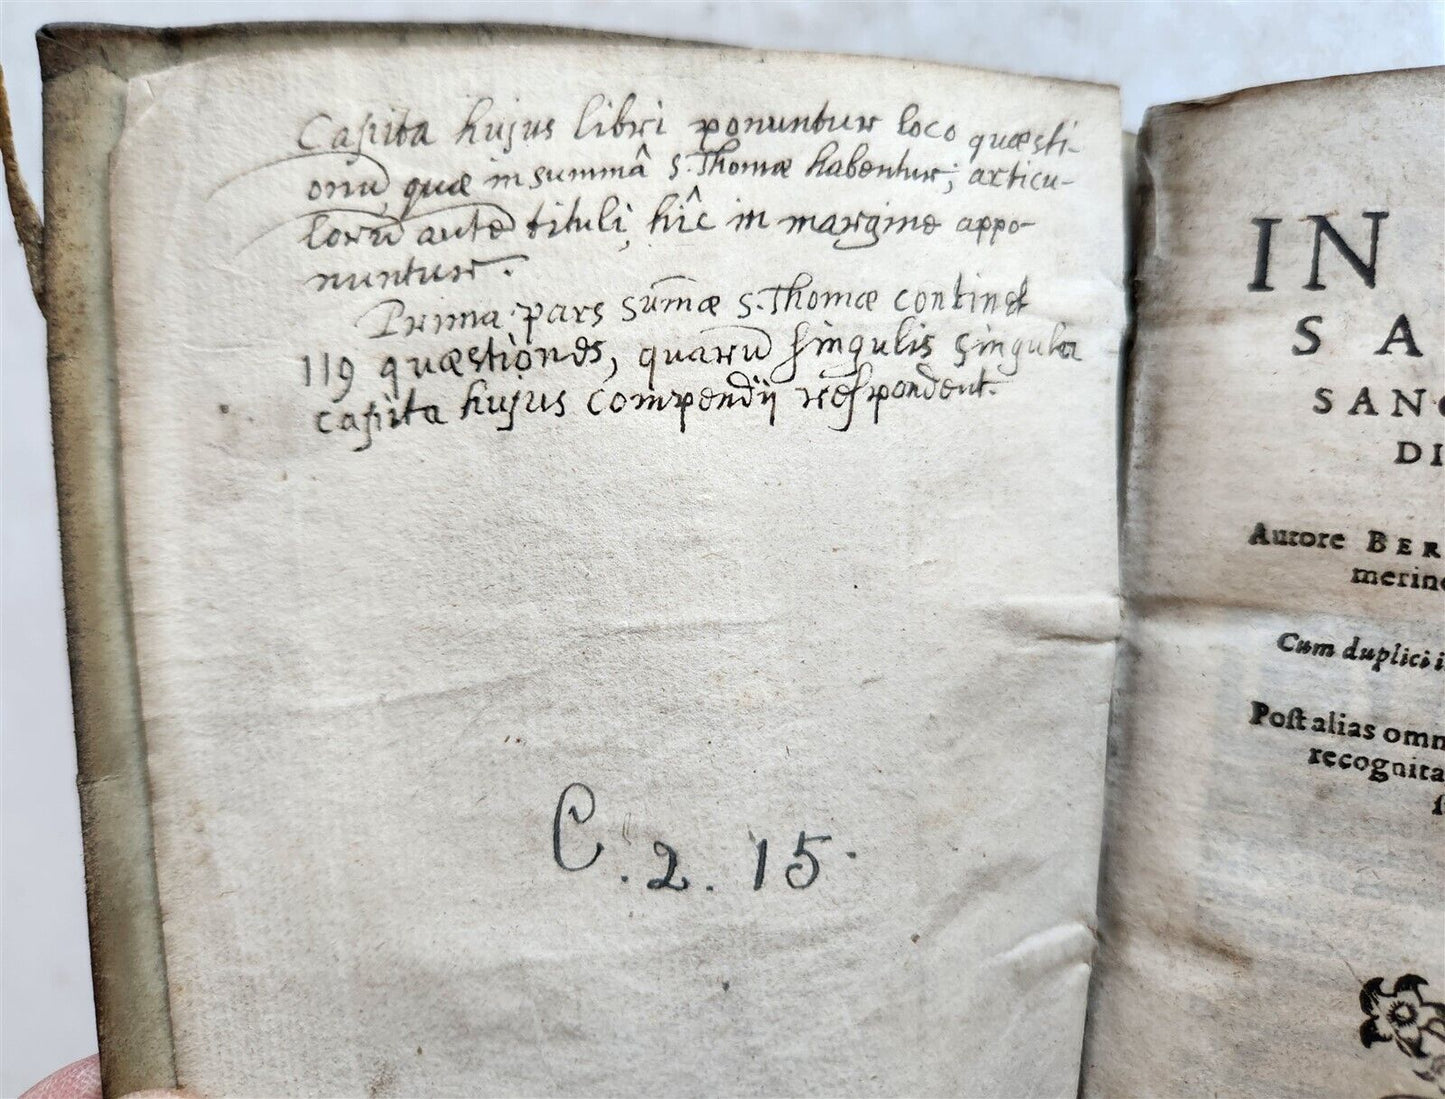 Capita hujus libri ponuntur loco quæsti-
onũ, quæ in summâ S. Thomæ habentur; articu-
lorũ autẽ tituli, hîc in margine appo-
nuntur.
Prima pars sum̃æ S. Thomæ continet
119 quæstiones, quarũ singulis singula
capita hujus compendij respondent.
C. 2. 15.
IN
SA
SANC
DI
Autore BER
merin
Cum duplici i
Poſt alias omn
recognita
ſ